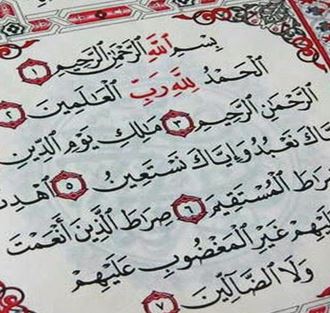 بِسْمِ ٱللَّهِ ٱلرَّحْمَٰنِ ٱلرَّحِيمِ ١
ٱلْحَمْدُ لِلَّهِ رَبِّ ٱلْعَٰلَمِينَ ٢
ٱلرَّحْمَٰنِ ٱلرَّحِيمِ ٣ مَٰلِكِ يَوْمِ ٱلدِّينِ
اكَ نَعْبُدُ وَإِيَّاكَ نَسْتَعِينُ ٥ ٱهْدِ
رَاطَ ٱلْمُسْتَقِيمَ ٦ صِرَاطَ ٱلَّذِينَ أَنْعَمْتَ
لَيْهِمْ غَيْرِ ٱلْمَغْضُوبِ عَلَيْهِمْ
وَلَا ٱلضَّآلِّينَ ٧